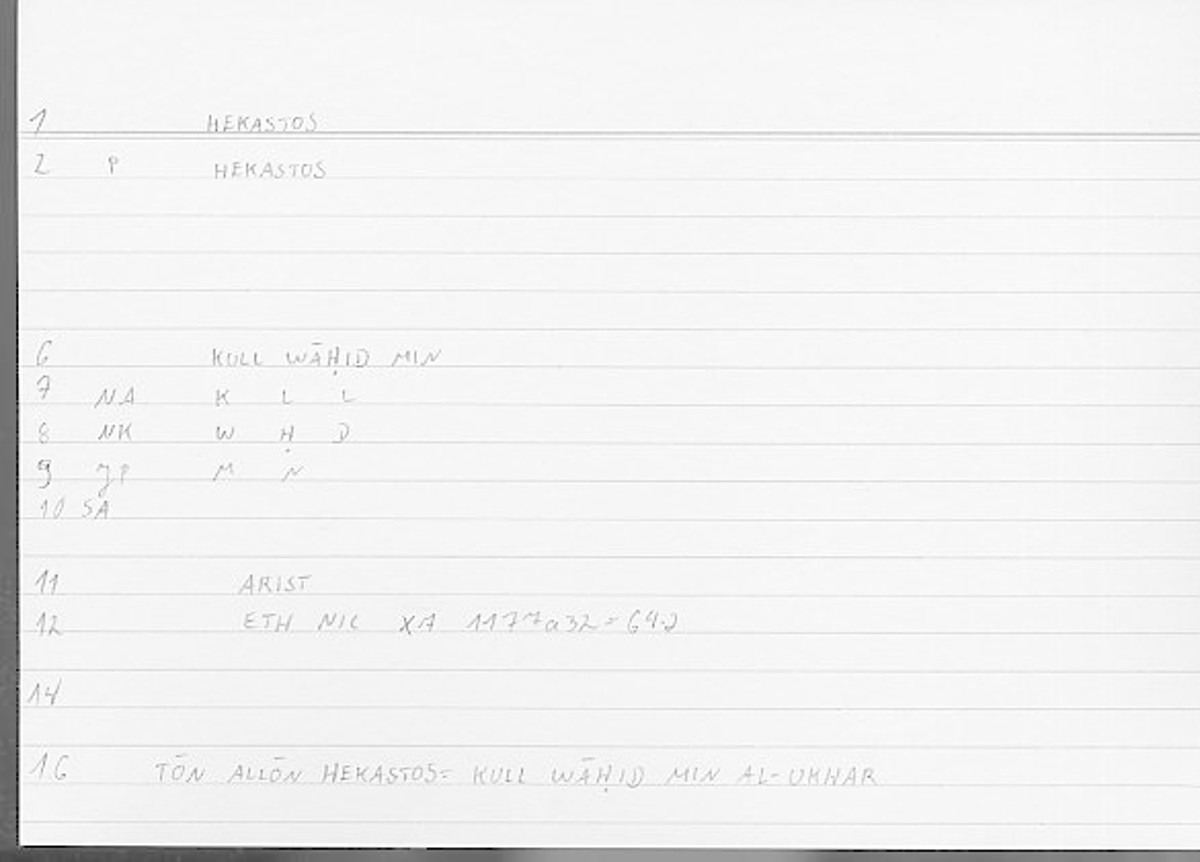 1 HEKASTOS
2 P HEKASTOS
6 KULL WĀḤID MIN
7 NA K L L
8 NK W Ḥ D
9 JP M N
10 SA
11 ARIST
12 ETH NIC XA 1177a32=64.2
14
16 TŌN ALLŌN HEKASTOS= KULL WĀḤID MIN AL-UKHAR